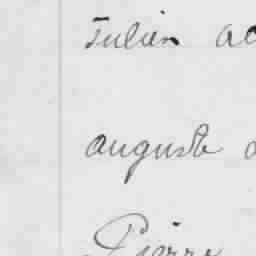 Julien ac
auguste a
Pierre